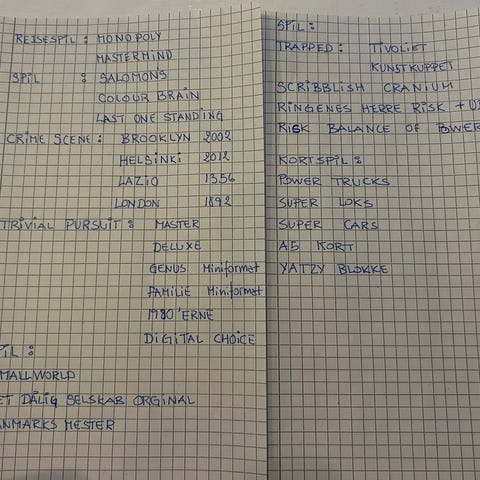 REJSESPIL : MONOPOLY
MASTERMIND
SPIL : SALOMONS
COLOUR BRAIN
LAST ONE STANDING
CRIME SCENE : BROOKLYN 2002
HELSINKI 2012
LAZIO 1356
LONDON 1892
TRIVIAL PURSUIT : MASTER
DELUXE
GENUS Miniformat
FAMILIE Miniformat
1980'ERNE
DIGITAL CHOICE
PIL :
MALLWORLD
ET DÅLIG SELSKAB ORGINAL
ANMARKS MESTER
SPIL :
TRAPPED : TIVOLIET
KUNSTKUPPET
SCRIBBLISH CRANIUM
RINGENES HERRE RISK +
RISK BALANCE OF POWER
KORTSPIL :
POWER TRUCKS
SUPER LOKS
SUPER CARS
A5 KORT
YATZY BLOKKE